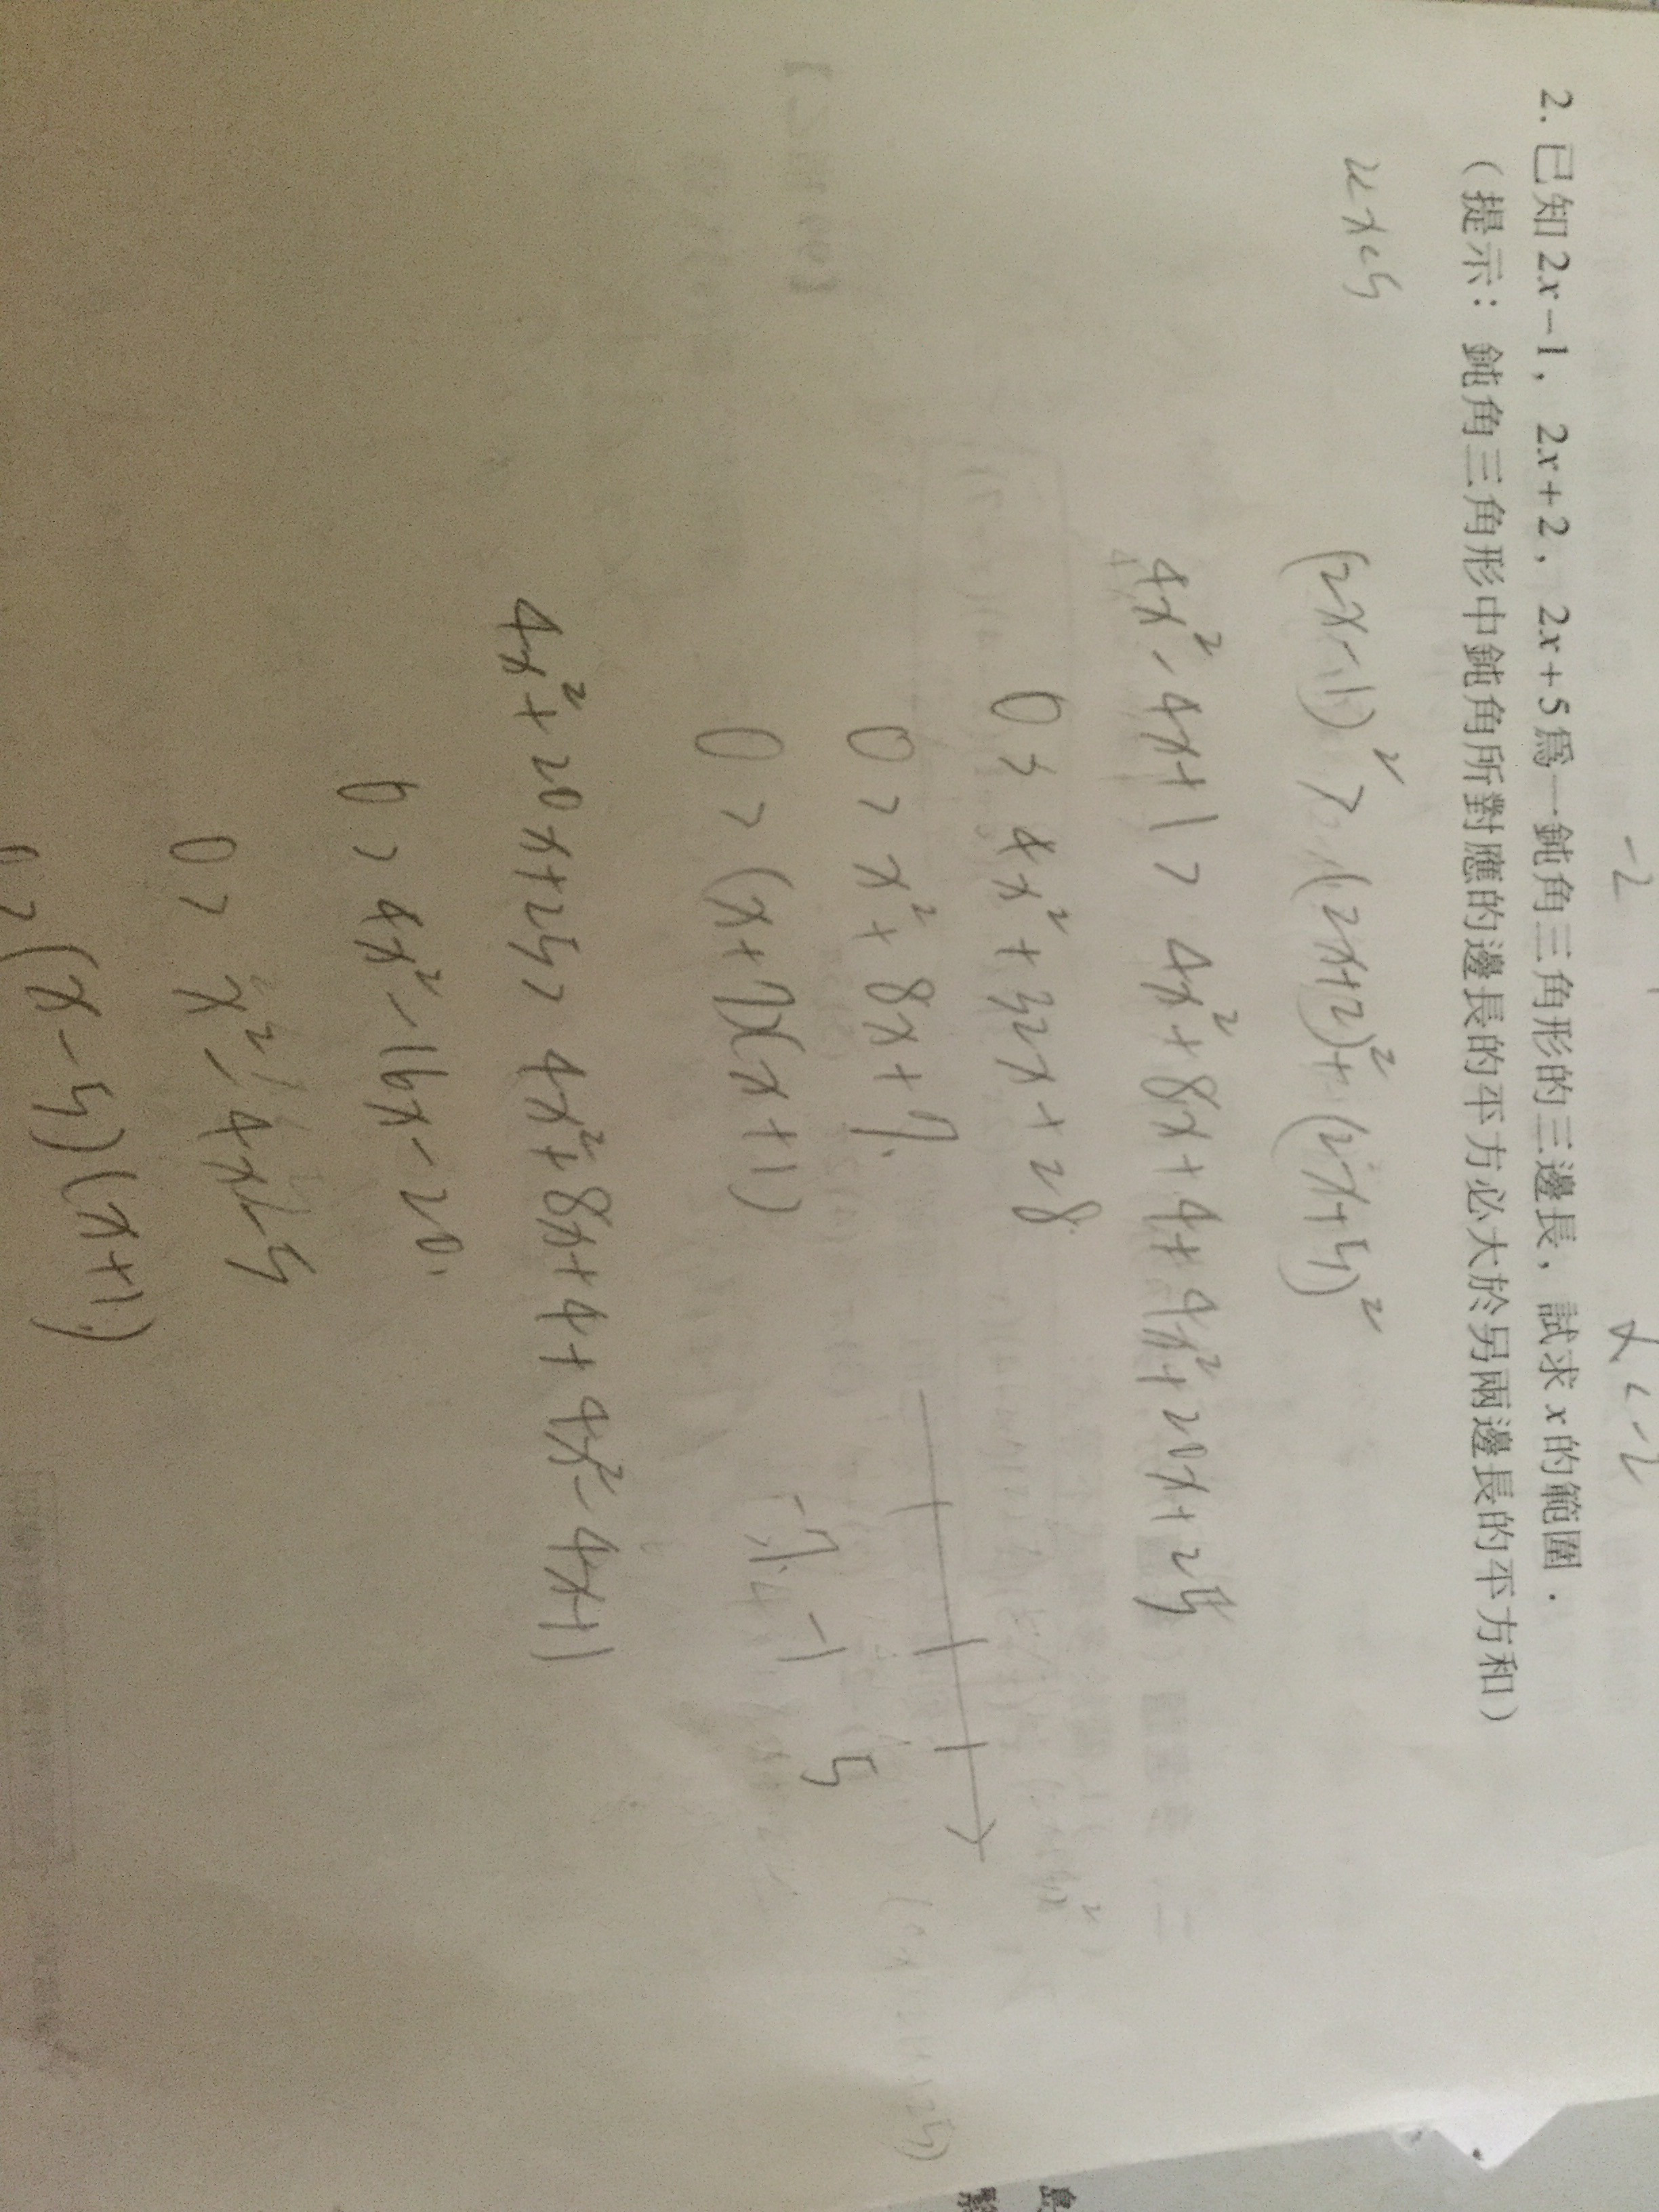 -2
x<-2
2. 已知2x-1，2x+2，2x+5為一鈍角三角形的三邊長，試求x的範圍．
（提示：鈍角三角形中鈍角所對應的邊長的平方必大於另兩邊長的平方和）
(2x-1)² > (2x+2)²+(2x+5)²
4x²-4x+1 > 4x²+8x+4+4x²+20x+25
0 > 4x²+32x+28
0 > x²+8x+7
0 > (x+7)(x+1)
-7 -1 5
4x²+20x+25 > 4x²+8x+4+4x²-4x+1
0 > 4x²-16x-20
0 > x²-4x-5
0 > (x-5)(x+1)